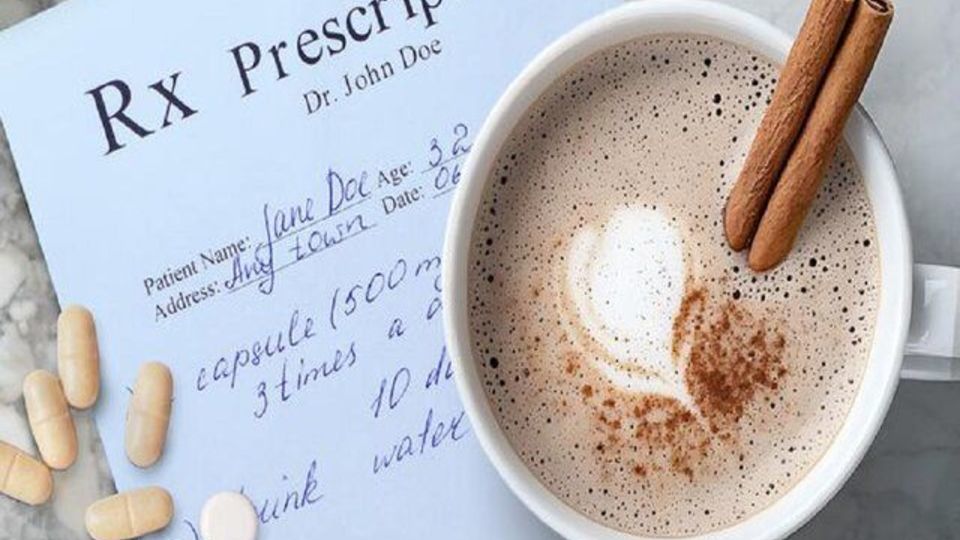 Rx Prescrip
Dr. John Doe
Patient Name: Jane Doe Age: 32
Address: Any town Date: 06
capsule (500 m
3 times a d
10 da
water
Drink